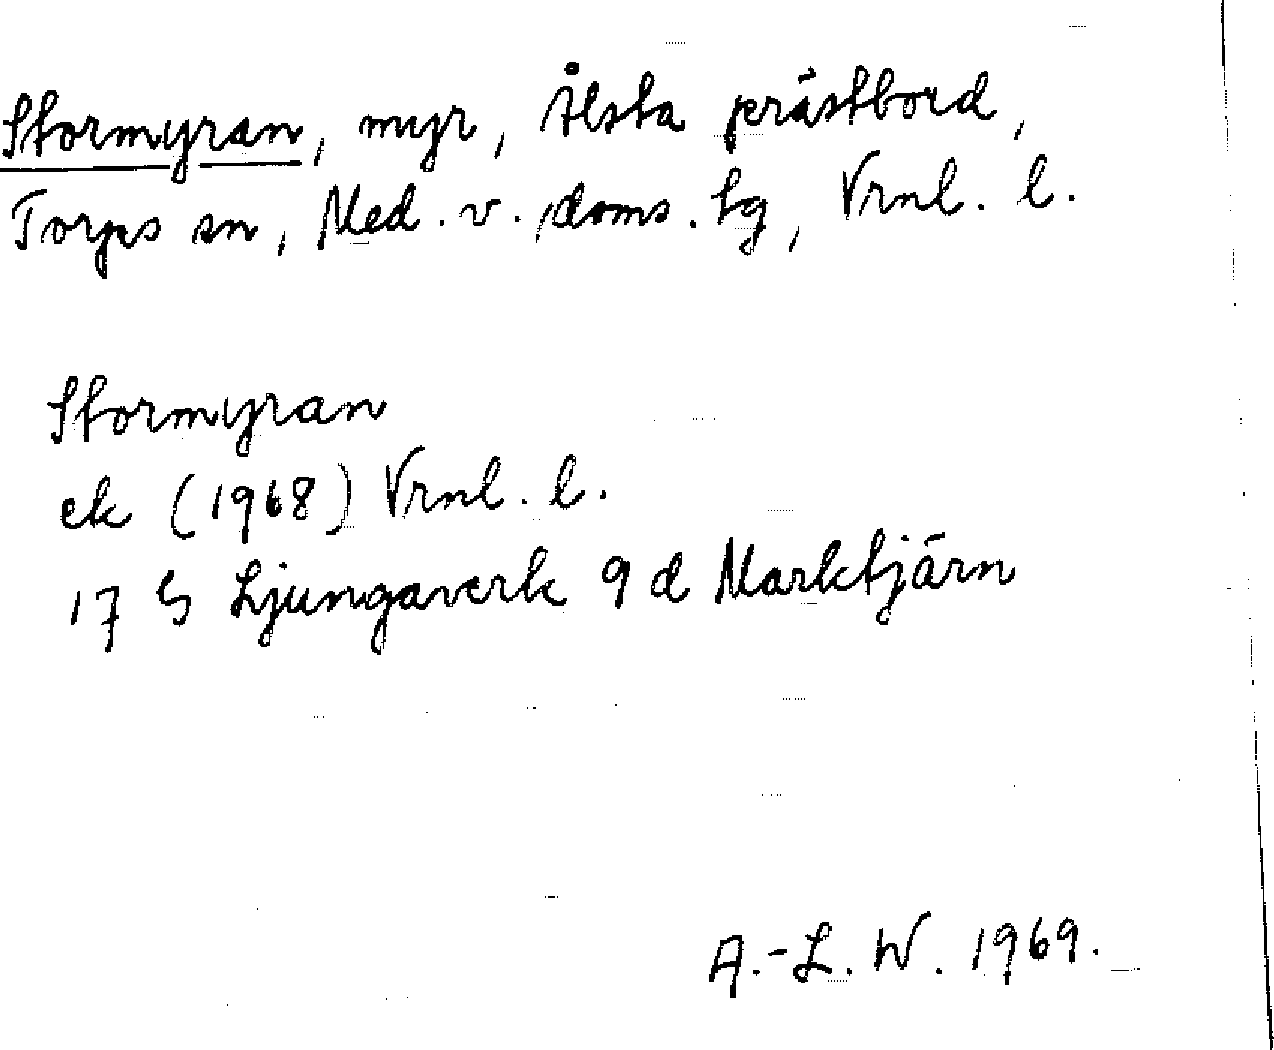 Stormyran, myr, Ålsta prästbord,
Torps sn, Med. v. doms. tg, Vrnl. l.
Stormyran
ek (1968) Vrnl. l.
17 G Ljungaverk 9 d Marktjärn
A.-L. W. 1969.